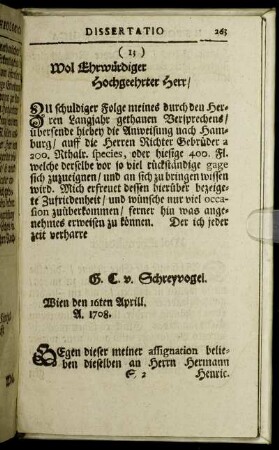 DISSERTATIO 263
( 13 )
Wol Ehrwürdiger
Hochgeehrter Herr/
ZU schuldiger Folge meines durch den Her-
ren Langjahr gethanen Versprechens/
übersende hiebey die Anweisung nach Ham-
burg/ auff die Herren Richter Gebrüder a
200. Rthalr. species, oder hiesige 400. Fl.
welche derselbe vor so viel rückständige gage
sich zuzueignen/ und an sich zu bringen wissen
wird. Mich erfreuet dessen hierüber bezeige-
te Zufriedenheit/ und wünsche nur viel occa-
sion zuüberkommen/ ferner hin was ange-
nehmes erweisen zu können. Der ich jeder
zeit verharre
G. C. v. Schreyvogel.
Wien den 16ten Aprill.
A. 1708.
GEgen dieser meiner assignation belie-
ben dieselben an Herrn Hermann
S 2 Henric.